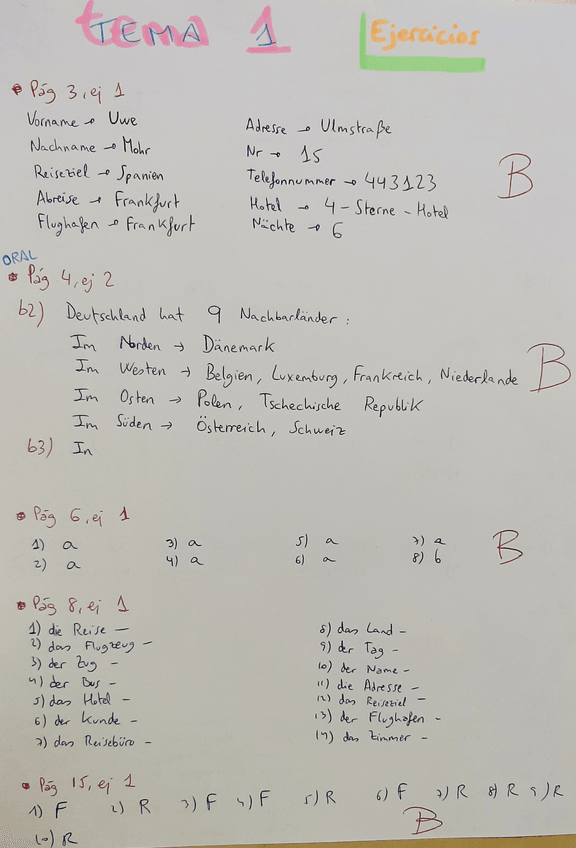 TEMA 1
Ejercicios
• Pág 3, ej 1
Vorname → Uwe
Nachname → Mohr
Reiseziel → Spanien
Abreise → Frankfurt
Flughafen → Frankfurt
Adresse → Ulmstraße
Nr → 15
Telefonnummer → 443123
Hotel → 4-Sterne-Hotel
Nächte → 6
B
ORAL
• Pág 4, ej 2
b2) Deutschland hat 9 Nachbarländer:
Im Norden → Dänemark
Im Westen → Belgien, Luxemburg, Frankreich, Niederlande
Im Osten → Polen, Tschechische Republik
Im Süden → Österreich, Schweiz
B
b3) In
• Pág 6, ej 1
1) a 3) a 5) a 7) a
2) a 4) a 6) a 8) b
B
• Pág 8, ej 1
1) die Reise –
2) das Flugzeug –
3) der Zug –
4) der Bus –
5) das Hotel –
6) der Kunde –
7) das Reisebüro –
8) das Land –
9) der Tag –
10) der Name –
11) die Adresse –
12) das Reiseziel –
13) der Flughafen –
14) das Zimmer –
• Pág 15, ej 1
1) F 2) R 3) F 4) F 5) R 6) F 7) R 8) R 9) R
10) R
B